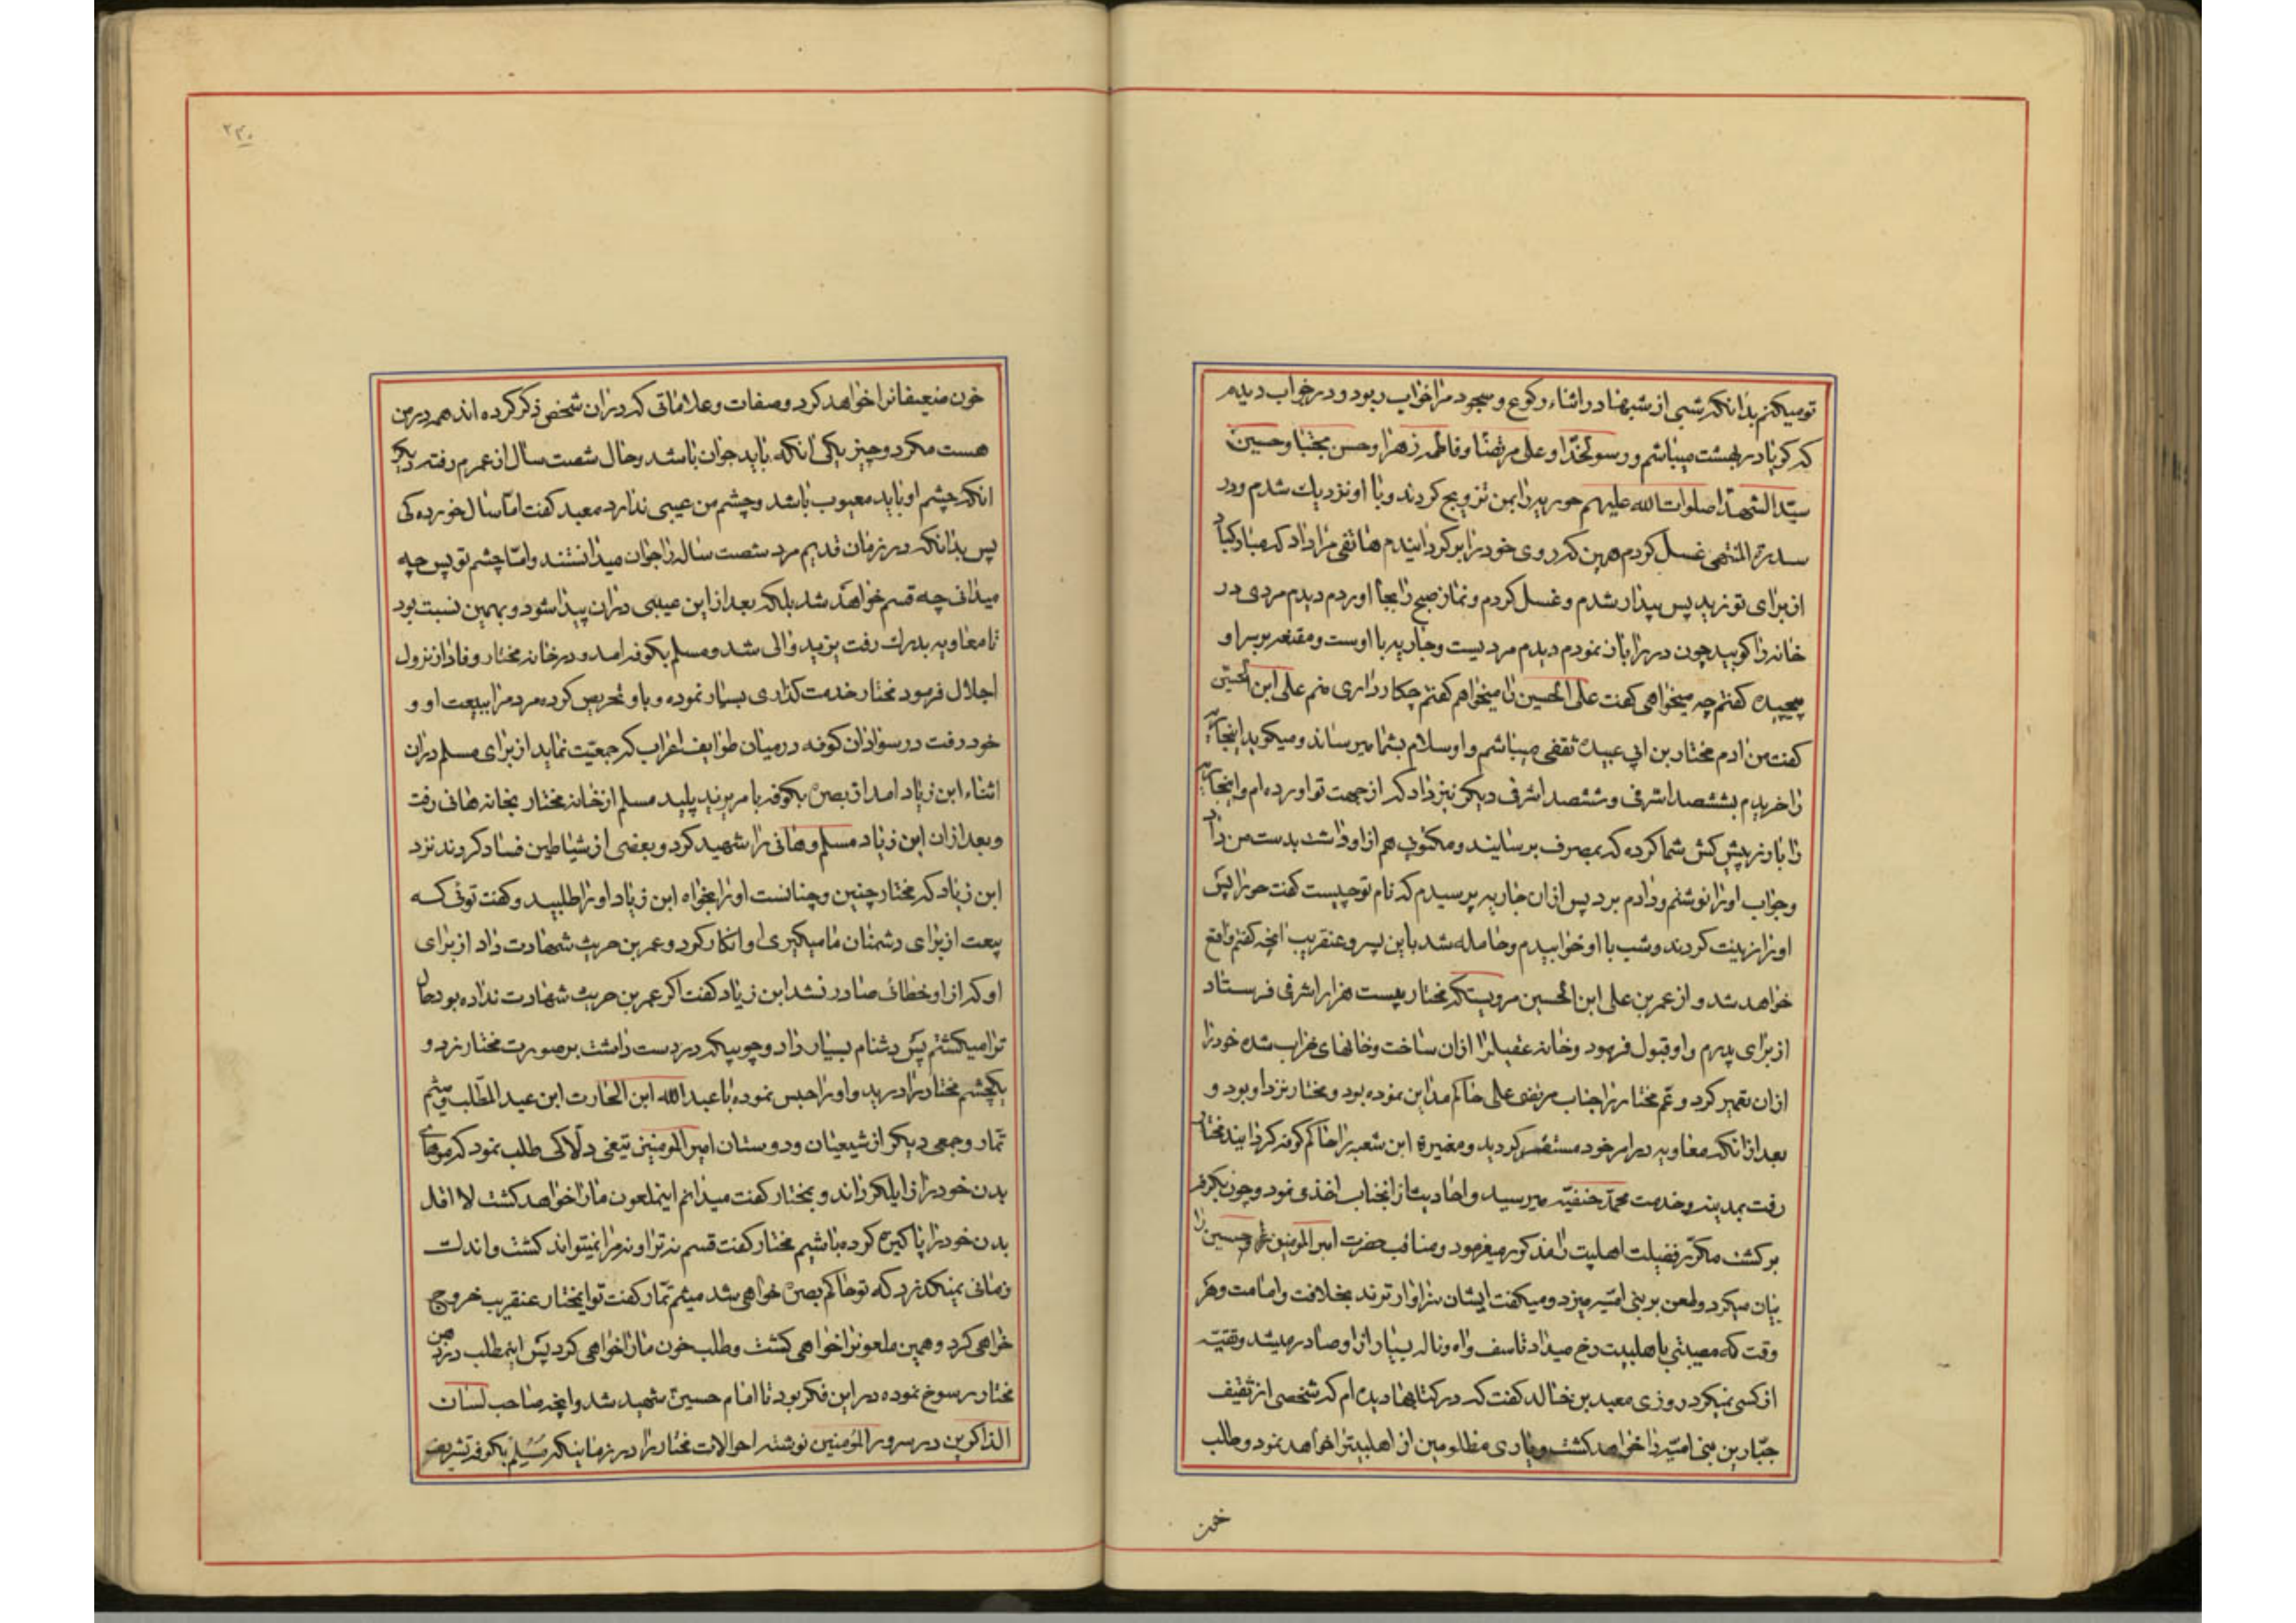 تو میکنم بدانکه شبی از شبها در اثناء رکوع و سجود مرا خواب ربود و در خواب دیدم
که کویا در بهشت میباشم و رسولخدا و علی مرتضا و فاطمه زهرا و حسن مجتبا و حسین
سیّد الشهدا صلوات الله علیهم حوریه را بمن تزویج کردند و با او نزدیك شدم و در
سدرة المنتهی غسل کردم همین که روی خود را بر کردانیدم هاتفی مرا داد که مبارکباد
از برای تو زید پس بیدار شدم و غسل کردم و نماز صبح را بجا اوردم دیدم مردی در
خانه را کوبید چون در را باز نمودم دیدم مردیست و جاریه با اوست و مقنعه بر سر او
پیچیده کفتم چه میخواهی کفت علی الحسین را میخواهم کفتم چکار داری منم علی ابن الحسین
کفت من ادم مختار بن ابی عبیده ثقفی میباشم و او سلام بشما میرساند و میکوید اینجاریه
را خریدم بششصد اشرفی و ششصد اشرفی دیکر نیز داد که از جهت تو اورده ام و اینجاریه
را با زر پیش کش شما کرده که بمصرف برسانید و مکتوب هم از او داشت بدست من داد
و جواب او را نوشتم و دادم برد پس از ان جاریه پرسیدم که نام تو چیست کفت حورا پس
او را زینت کردند و شب با او خوابیدم و حامله شد باین پسر و عنقریب انچه کفتم واقع
خواهد شد و از عمر بن علی ابن الحسین مرویستکه مختار بیست هزار اشرفی فرستاد
از برای پدرم و او قبول فرمود و خانه عقیل را از ان ساخت و خانهای خراب شده خود را
از ان تعمیر کرد و عّم مختار را جناب مرتضی علی حاکم مداین نموده بود و مختار نزد او بود و
بعد از انکه معاویه در امر خود مستقر کردید و مغیرة ابن شعبه را حاکم کوفه کردانید مختار
رفت بمدینه و خدمت محمّد حنفیّه میرسید و احادیث از انجناب اخذ می نمود و چون بکوفه
بر کشت مکرّر فضیلت اهلبیت را مذکور میفرمود و مناقب حضرت امیر المومنین و حسین را
بیان میکرد و لعن بر بنی امیّه میزد و میکفت ایشان سزاوار ترند بخلافت و امامت و هر
وقت که مصیبتی باهلبیت رخ میداد تاسف و اه و ناله بسیار از او صادر میشد و تقیّه
از کسی نمیکرد روزی معبد بن خالد کفت که در کتابها دیده ام که شخصی از ثقیف
جبّارین بنی امیّه را خواهد کشت و یاری مظلومین از اهلبیت را خواهد نمود و طلب
خون
۲۳۰
خون ضعیفانرا خواهد کرد و صفات و علاماتی که در ان شخص ذکر کرده اند همه در من
هست مکر دو چیز یکی انکه باید جوان باشد و حال شصت سال از عمرم رفته دیکر
انکه چشم او باید معیوب باشد و چشم من عیبی ندارد معبد کفت امّا سال خورده کی
پس بدانکه در زمان قدیم مرد شصت ساله را جوان میدانستند و امّا چشم تو پس چه
میدانی چه قسم خواهد شد بلکه بعد از این عیبی در ان پیدا شود و بهمین نسبت بود
تا معاویه بدرك رفت یزید والی شد و مسلم بکوفه امد و در خانه مختار وفادار نزول
اجلال فرمود مختار خدمت کذاری بسیار نموده و باو تحریص کرده مردم را ببیعت او و
خود رفت در سوادان کوفه در میان طوایف اعراب که جمعیّت نماید از برای مسلم در ان
اثناء ابن زیاد امد از بصره بکوفه بامر یزید پلید مسلم از خانه مختار بخانه هانی رفت
و بعد از ان ابن زیاد مسلم و هانی را شهید کرد و بعضی از شیاطین فساد کردند نزد
ابن زیاد که مختار چنین و چنانست او را بخواه ابن زیاد او را طلبید و کفت توئی که
بیعت از برای دشمنان ما میکیری او انکار کرد و عمر بن حریث شهادت داد از برای
او که از او خطائی صادر نشد ابن زیاد کفت اکر عمر بن حریث شهادت نداده بود حال
ترا میکشتم پس دشنام بسیار داد و چوبیکه در دست داشت بر صورت مختار زد و
یکچشم مختار را درید و او را حبس نموده با عبد الله ابن الحارث ابن عبد المطّلب و میثم
تمّار و جمعی دیکر از شیعیان و دوستان امیر المومنین تیغی دلّاکی طلب نمود که موهای
بدن خود را زایل کرداند و بمختار کفت میدانم اینملعون ما را خواهد کشت لا اقل
بدن خود را پاکیزه کرده باشیم مختار کفت قسم نه ترا و نه مرا نمیتواند کشت و اندك
زمانی نمیکذرد که تو حاکم بصره خواهی شد میثم تمّار کفت تو ایمختار عنقریب خروج
خواهی کرد و همین ملعونرا خواهی کشت و طلب خون ما را خواهی کرد پس اینمطلب در ذهن
مختار رسوخ نموده در این فکر بود تا امام حسین شهید شد و انچه صاحب لسان
الذاکرین در سرور المؤمنین نوشته احوالات مختار را در زمانیکه مسلم بکوفه تشریف